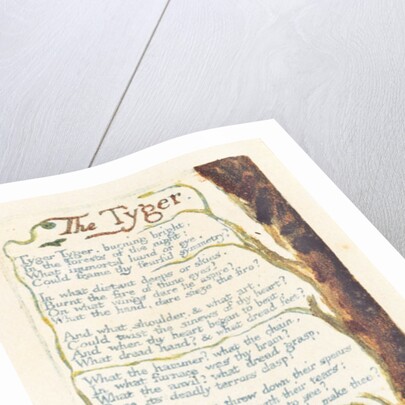 The Tyger.
Tyger Tyger, burning bright,
In the forests of the night:
What immortal hand or eye,
Could frame thy fearful symmetry?
In what distant deeps or skies.
Burnt the fire of thine eyes?
On what wings dare he aspire?
What the hand, dare sieze the fire?
And what shoulder, & what art,
Could twist the sinews of thy heart?
And when thy heart began to beat,
What dread hand? & what dread feet?
What the hammer? what the chain,
In what furnace was thy brain?
What the anvil? what dread grasp,
its deadly terrors clasp?
threw down their spears
with their tears:
to see?
make thee?